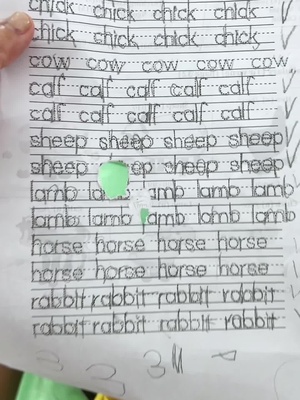 chick chick chick chick
chick chick chick chick
cow cow cow cow cow
calf calf calf calf calf
calf calf calf calf calf
sheep sheep sheep sheep
sheep ep sheep sheep
lamb la amb lamb lamb
lamb lamb amb lamb lamb
horse horse horse horse
horse horse horse horse
rabbit rabbit rabbit rabbit
rabbit rabbit rabbit rabbit
3 3 3